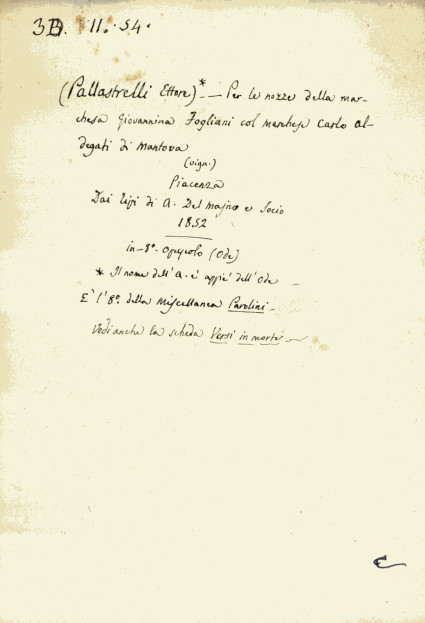 3B. II. 54.
(Pallastrelli Ettore)* — Per le nozze della mar-
chesa Giovannina Fogliani col marchese Carlo Al-
degati di Mantova
(vign.)
Piacenza
Dai tipi di A. Del Majno e Socio
1852
in-8º. Opuscolo (Ode)
* Il nome dell'A. è appiè dell'Ode —
E' l'8º della Miscellanea Parolini —
Vedi anche la scheda Versi in morte —